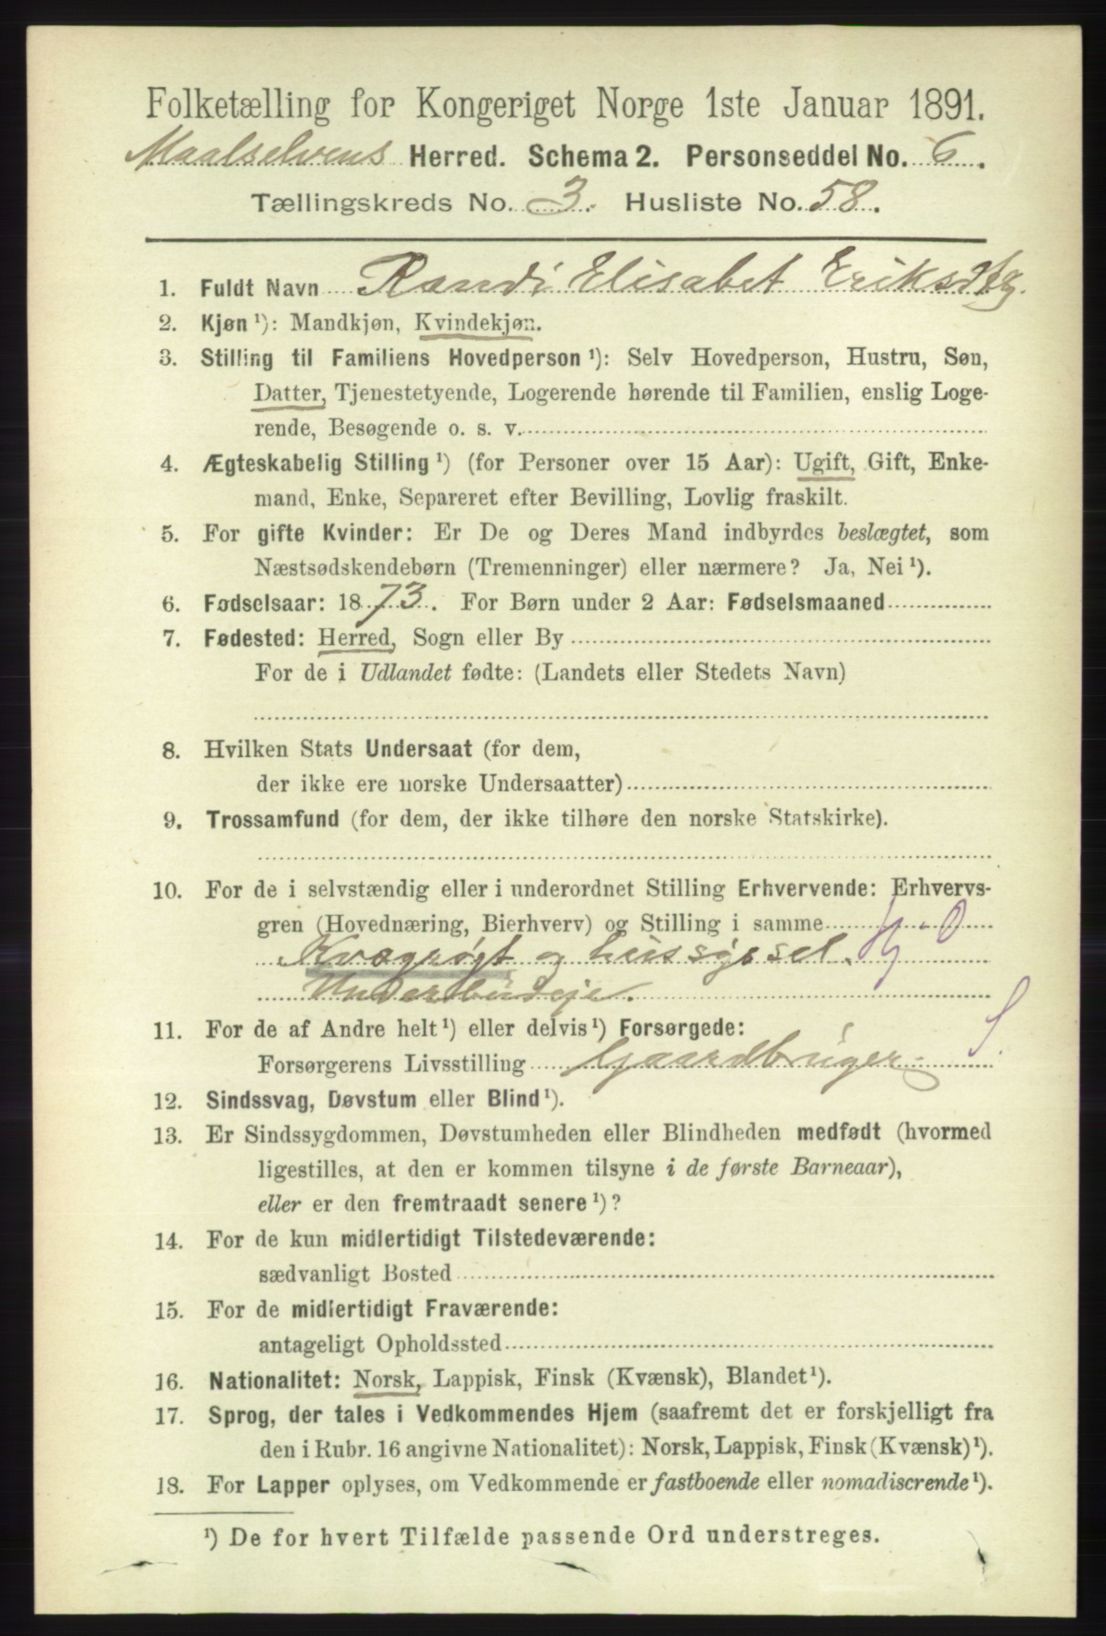 Folketælling for Kongeriget Norge 1ste Januar 1891.
Maalselvens Herred. Schema 2. Personseddel No. 6.
Tællingskreds No. 3. Husliste No. 58.
1. Fuldt Navn Randi Elisabet Eriksdtg.
2. Kjøn ¹): Mandkjøn, Kvindekjøn.
3. Stilling til Familiens Hovedperson ¹): Selv Hovedperson, Hustru, Søn,
Datter, Tjenestetyende, Logerende hørende til Familien, enslig Loge-
rende, Besøgende o. s. v.
4. Ægteskabelig Stilling ¹) (for Personer over 15 Aar): Ugift, Gift, Enke-
mand, Enke, Separeret efter Bevilling, Lovlig fraskilt.
5. For gifte Kvinder: Er De og Deres Mand indbyrdes beslægtet, som
Næstsødskendebørn (Tremenninger) eller nærmere? Ja, Nei ¹).
6. Fødselsaar: 1873. For Børn under 2 Aar: Fødselsmaaned
7. Fødested: Herred, Sogn eller By
For de i Udlandet fødte: (Landets eller Stedets Navn)
8. Hvilken Stats Undersaat (for dem,
der ikke ere norske Undersaatter)
9. Trossamfund (for dem, der ikke tilhøre den norske Statskirke).
10. For de i selvstændig eller i underordnet Stilling Erhvervende: Erhvervs-
gren (Hovednæring, Bierhverv) og Stilling i samme
Kvægrøgt og hussyssel.
Underbudeje.
11. For de af Andre helt ¹) eller delvis ¹) Forsørgede:
Forsørgerens Livsstilling Gaardbruger S.
12. Sindssvag, Døvstum eller Blind ¹).
13. Er Sindssygdommen, Døvstumheden eller Blindheden medfødt (hvormed
ligestilles, at den er kommen tilsyne i de første Barneaar),
eller er den fremtraadt senere ¹)?
14. For de kun midlertidigt Tilstedeværende:
sædvanligt Bosted
15. For de midlertidigt Fraværende:
antageligt Opholdssted
16. Nationalitet: Norsk, Lappisk, Finsk (Kvænsk), Blandet ¹).
17. Sprog, der tales i Vedkommendes Hjem (saafremt det er forskjelligt fra
den i Rubr. 16 angivne Nationalitet): Norsk, Lappisk, Finsk (Kvænsk) ¹).
18. For Lapper oplyses, om Vedkommende er fastboende eller nomadiserende ¹).
¹) De for hvert Tilfælde passende Ord understreges.